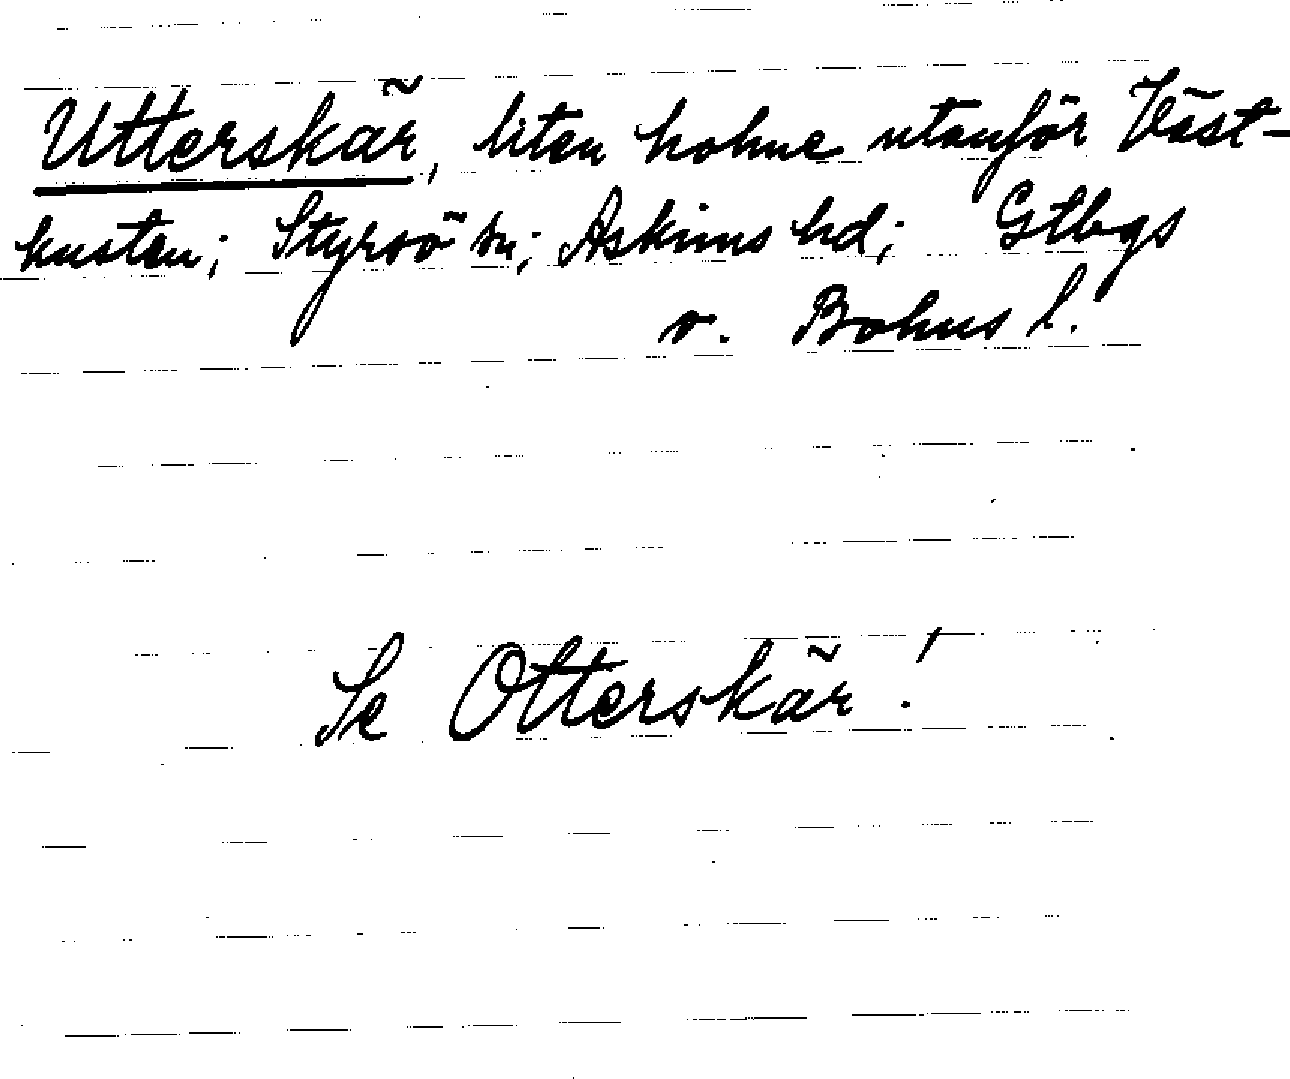 Utterskär, liten holme utanför Väst-
kusten; Styrsö sn; Askims hd; Gtbgs
o. Bohus l.
Se Otterskär!